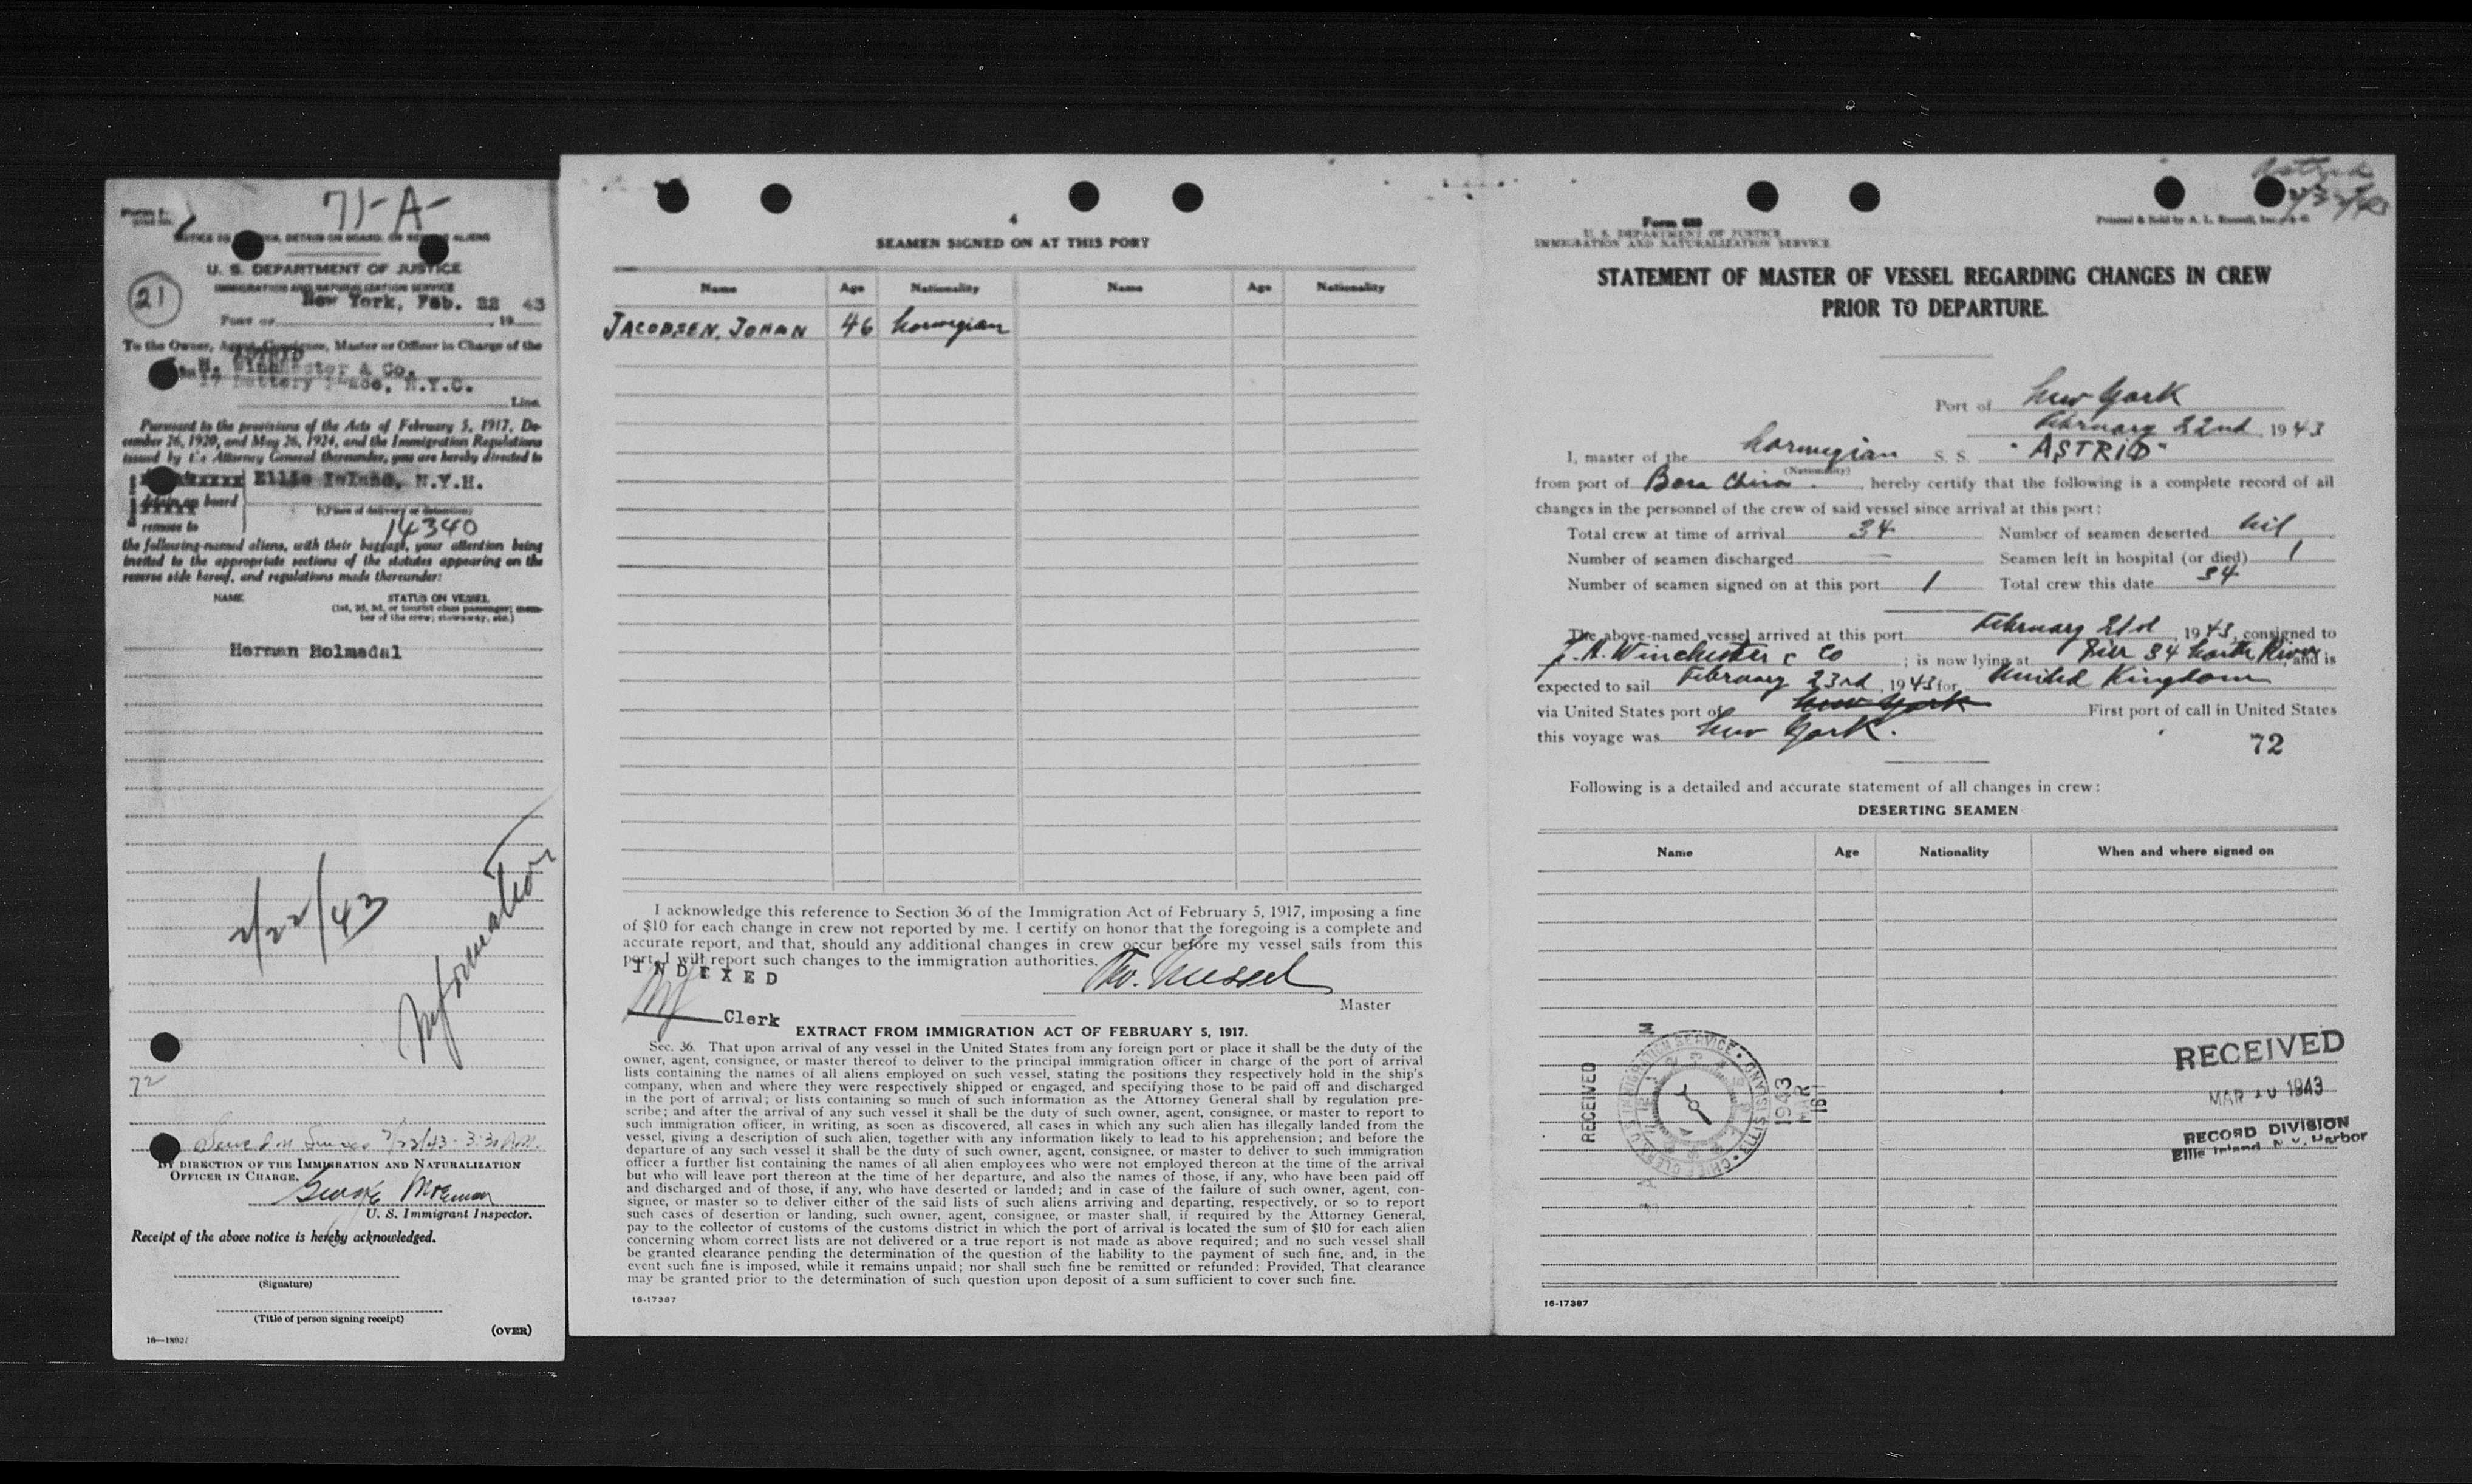 71-A-
U. S. DEPARTMENT OF JUSTICE
IMMIGRATION AND NATURALIZATION SERVICE
21
New York, Feb. 22 43
Port of , 19
To the Owner, Agent, Consignee, Master or Officer in Charge of the
ASTRID
H. Winchester & Co.
17 Battery Place, N.Y.C.
Line.
Pursuant to the provisions of the Acts of February 5, 1917, De-
cember 26, 1920, and May 26, 1924, and the Immigration Regulations
issued by the Attorney General thereunder, you are hereby directed to
Ellis Island, N.Y.H.
detain on board
(Place of delivery or detention)
remove to
14340
the following-named aliens, with their baggage, your attention being
invited to the appropriate sections of the statutes appearing on the
reverse side hereof, and regulations made thereunder:
NAME
STATUS ON VESSEL
(1st, 2d, 3d, or tourist class passenger; mem-
ber of the crew; stowaway, etc.)
Herman Holmedal
2/22/43
Information
72
2/23/43 - 3:30 P.M.
BY DIRECTION OF THE IMMIGRATION AND NATURALIZATION
OFFICER IN CHARGE.
George
U. S. Immigrant Inspector.
Receipt of the above notice is hereby acknowledged.
(Signature)
(Title of person signing receipt)
(OVER)
4
SEAMEN SIGNED ON AT THIS PORT
Name Age Nationality Name Age Nationality
JACOBSEN, JOHAN 46 Norwegian
I acknowledge this reference to Section 36 of the Immigration Act of February 5, 1917, imposing a fine
of $10 for each change in crew not reported by me. I certify on honor that the foregoing is a complete and
accurate report, and that, should any additional changes in crew occur before my vessel sails from this
port, I will report such changes to the immigration authorities.
INDEXED
Master
Clerk
EXTRACT FROM IMMIGRATION ACT OF FEBRUARY 5, 1917.
Sec. 36. That upon arrival of any vessel in the United States from any foreign port or place it shall be the duty of the
owner, agent, consignee, or master thereof to deliver to the principal immigration officer in charge of the port of arrival
lists containing the names of all aliens employed on such vessel, stating the positions they respectively hold in the ship's
company, when and where they were respectively shipped or engaged, and specifying those to be paid off and discharged
in the port of arrival; or lists containing so much of such information as the Attorney General shall by regulation pre-
scribe; and after the arrival of any such vessel it shall be the duty of such owner, agent, consignee, or master to report to
such immigration officer, in writing, as soon as discovered, all cases in which any such alien has illegally landed from the
vessel, giving a description of such alien, together with any information likely to lead to his apprehension; and before the
departure of any such vessel it shall be the duty of such owner, agent, consignee, or master to deliver to such immigration
officer a further list containing the names of all alien employees who were not employed thereon at the time of the arrival
but who will leave port thereon at the time of her departure, and also the names of those, if any, who have been paid off
and discharged and of those, if any, who have deserted or landed; and in case of the failure of such owner, agent, con-
signee, or master so to deliver either of the said lists of such aliens arriving and departing, respectively, or so to report
such cases of desertion or landing, such owner, agent, consignee, or master, shall, if required by the Attorney General,
pay to the collector of customs of the customs district in which the port of arrival is located the sum of $10 for each alien
concerning whom correct lists are not delivered or a true report is not made as above required; and no such vessel shall
be granted clearance pending the determination of the question of the liability to the payment of such fine, and, in the
event such fine is imposed, while it remains unpaid; nor shall such fine be remitted or refunded: Provided, That clearance
may be granted prior to the determination of such question upon deposit of a sum sufficient to cover such fine.
16-17387
Astrid
Form 689
U. S. DEPARTMENT OF JUSTICE
IMMIGRATION AND NATURALIZATION SERVICE
Printed & Sold by A. L. Russell, Inc.
STATEMENT OF MASTER OF VESSEL REGARDING CHANGES IN CREW
PRIOR TO DEPARTURE.
Port of New York
February 22nd, 1943
I, master of the Norwegian S. S. "ASTRID"
(Nationality)
from port of , hereby certify that the following is a complete record of all
changes in the personnel of the crew of said vessel since arrival at this port:
Total crew at time of arrival 34 Number of seamen deserted nil
Number of seamen discharged — Seamen left in hospital (or died) 1
Number of seamen signed on at this port 1 Total crew this date 34
The above-named vessel arrived at this port February 21st, 1943, consigned to
J. H. Winchester & Co; is now lying at Pier 34 North River, and is
expected to sail February 23rd, 1943 for United Kingdom
via United States port of New York First port of call in United States
this voyage was New York.
72
Following is a detailed and accurate statement of all changes in crew:
DESERTING SEAMEN
Name Age Nationality When and where signed on
RECEIVED
1943
MAR
RECEIVED
MAR 10 1943
RECORD DIVISION
Ellis Island, N. Y. Harbor
16-17387